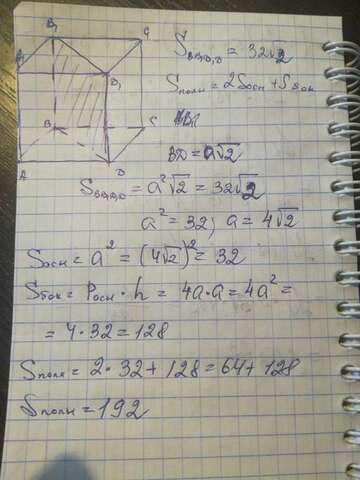 B₁
C₁
A₁
D₁
B
C
A
D
S_BB₁D₁D = 32√2
Sполн = 2Sосн + Sбок
BD = a√2
S_BB₁D₁D = a²√2 = 32√2
a² = 32; a = 4√2
Sосн = a² = (4√2)² = 32
Sбок = Pосн · h = 4a · a = 4a² =
= 4 · 32 = 128
Sполн = 2 · 32 + 128 = 64 + 128
Sполн = 192